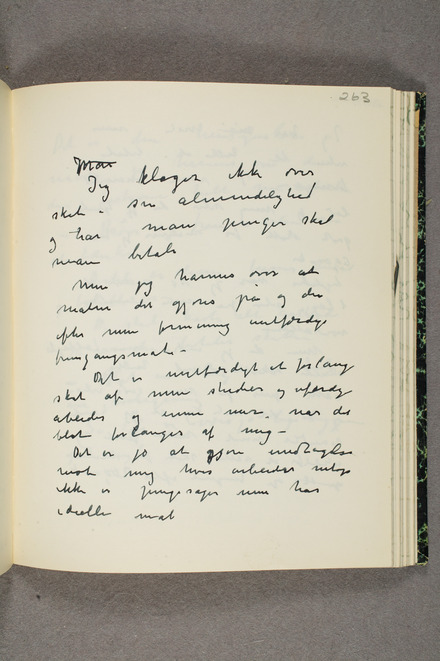 263
Man
Jeg klager ikke over
skat i sin almindelighed
og har man penger skal
man betale
Men jeg harmes over at
maten det gjøres på og den
efter min formening uretfærdige
fremgangsmate –
Det er uretfærdigt at forlange
skat af mine studier og uferdige
arbeider og enne mer, nar de
blot forlanges af mig –
Det er jo at gjøre undtagelse
mot mig hvis arbeider
ikke er pengesager men har
ideelle mal